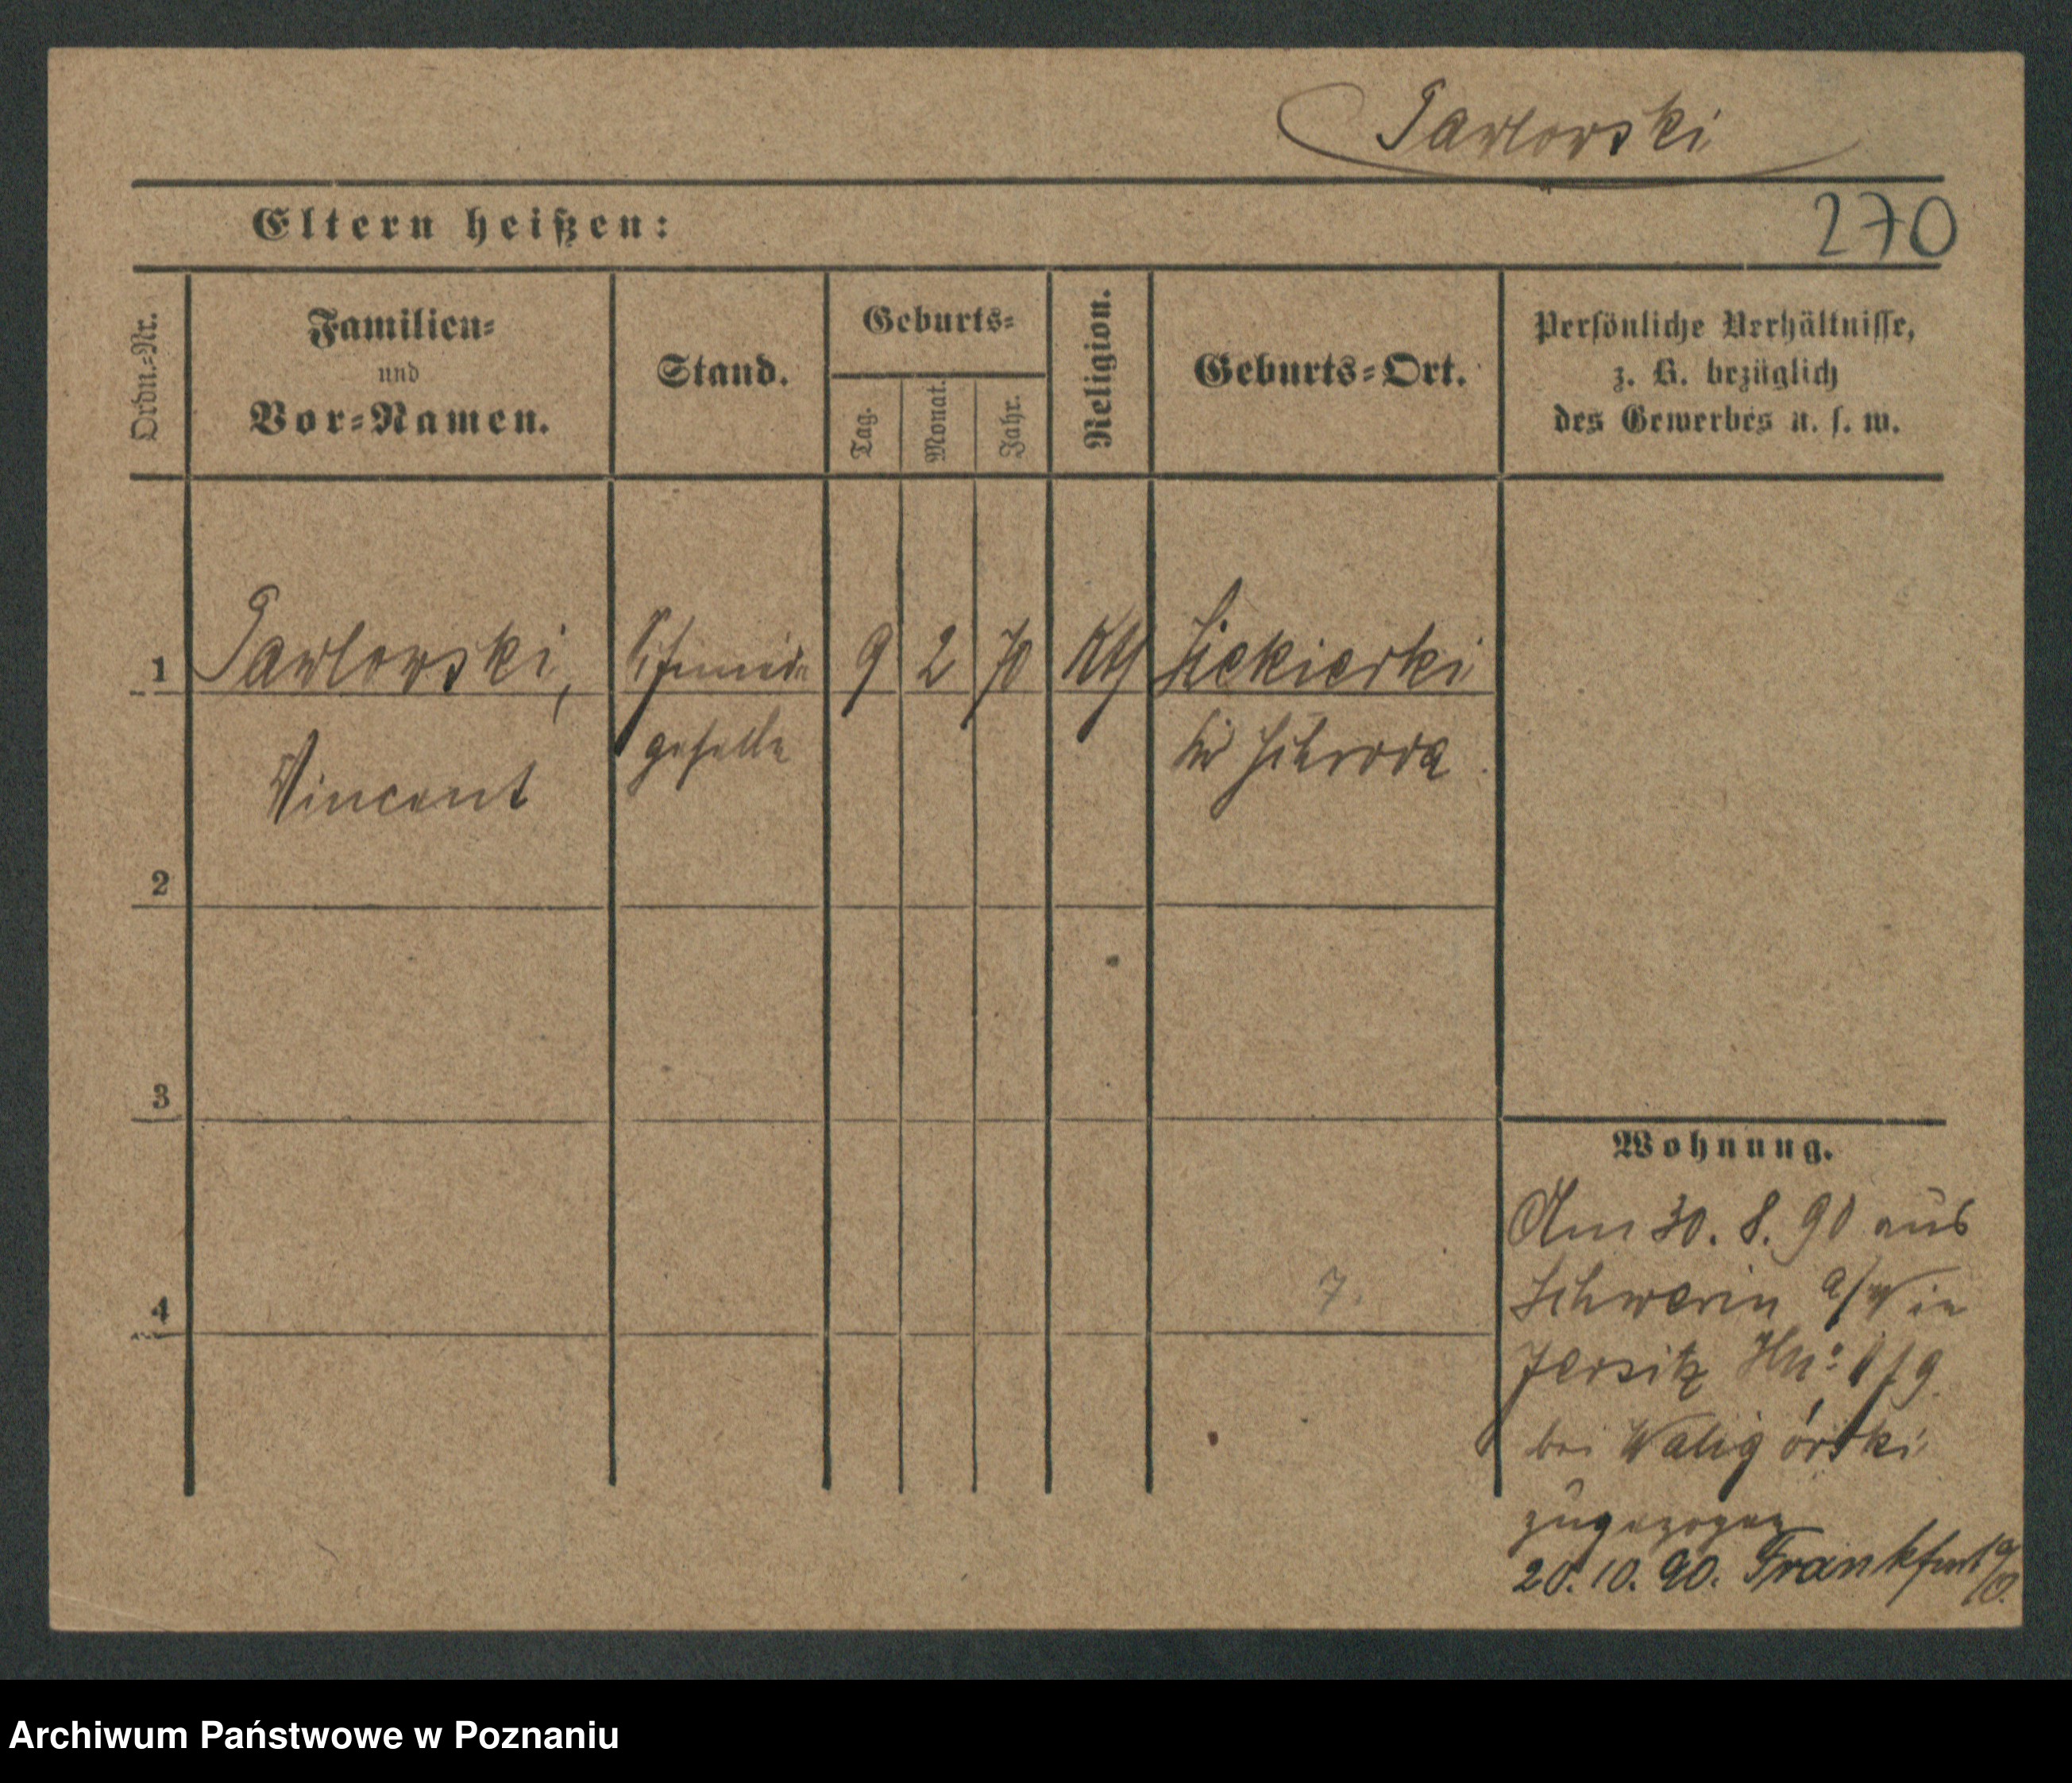 Pawlowski
Eltern heißen:
270
Ordn.=Nr.
Familien=
und
Vor=Namen.
Stand.
Geburts=
Tag.
Monat.
Jahr.
Religion.
Geburts=Ort.
Persönliche Verhältnisse,
z. B. bezüglich
des Gewerbes u. s. w.
1 Pawlowski, Schmiede 9 2 70 kth Siekierki
Vincent geselle Schroda
2
3
4
7.
Wohnung.
Am 30. 8. 90 aus
Schwerin a/W in
Jersitz
bei Waligórski
zugezogen
20. 10. 90. Frankfurt a/O.
Archiwum Państwowe w Poznaniu